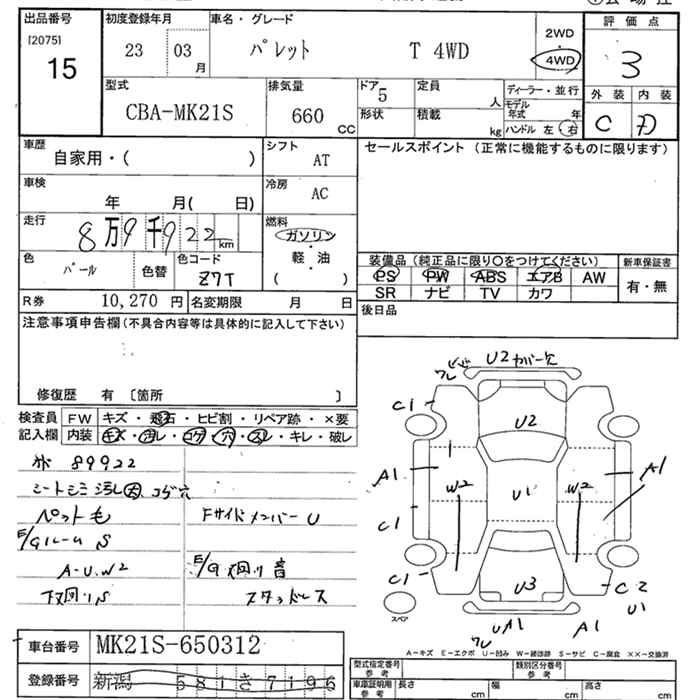 出品番号 初度登録年月 車名・グレード 評価点
[2075] 15
23 03 月 パレット T 4WD 2WD 4WD 3
型式 排気量 ドア 定員 ディーラー・並行 外装 内装
CBA-MK21S 660 CC 5 人 モデル年式 年 C D
形状 積載 kg ハンドル 左 右
車歴 シフト セールスポイント (正常に機能するものに限ります)
自家用・( ) AT
車検 冷房
年 月( 日) AC
走行 燃料
8万9千922 km ガソリン
軽・油
( )
色 色替 色コード 装備品 (純正品に限り○をつけてください) 新車保証書
パール Z7T PS PW ABS エアB AW 有・無
SR ナビ TV カワ
R券 10,270 円 名変期限 月 日 後日品
注意事項申告欄(不具合内容等は具体的に記入して下さい)
修復歴 有 [箇所 ]
検査員 FW キズ・飛石・ヒビ割・リペア跡・×要
記入欄 内装 キズ・ヨレ・コゲ・穴・スレ・キレ・破レ
89922
シートシミ汚レ大 コゲ穴
ペット毛 Fサイドメンバー U
E/Gルーム S
A-U.W2 E/G廻り音
下廻りS スタッドレス
車台番号 MK21S-650312
登録番号 新潟 581 さ 7196
U2 カバー欠
ワレ
C1 U2
A1 W2 U1 W2 A1
C1
C1 U3 C2
U1
スペア UA1 A1
ワレ
A-キズ E-エクボ U-凹み W-補修跡 S-サビ C-腐食 ××-交換済
型式指定番号 参考 類別区分番号 参考
車庫証明用 参考 長さ cm 幅 cm 高さ cm